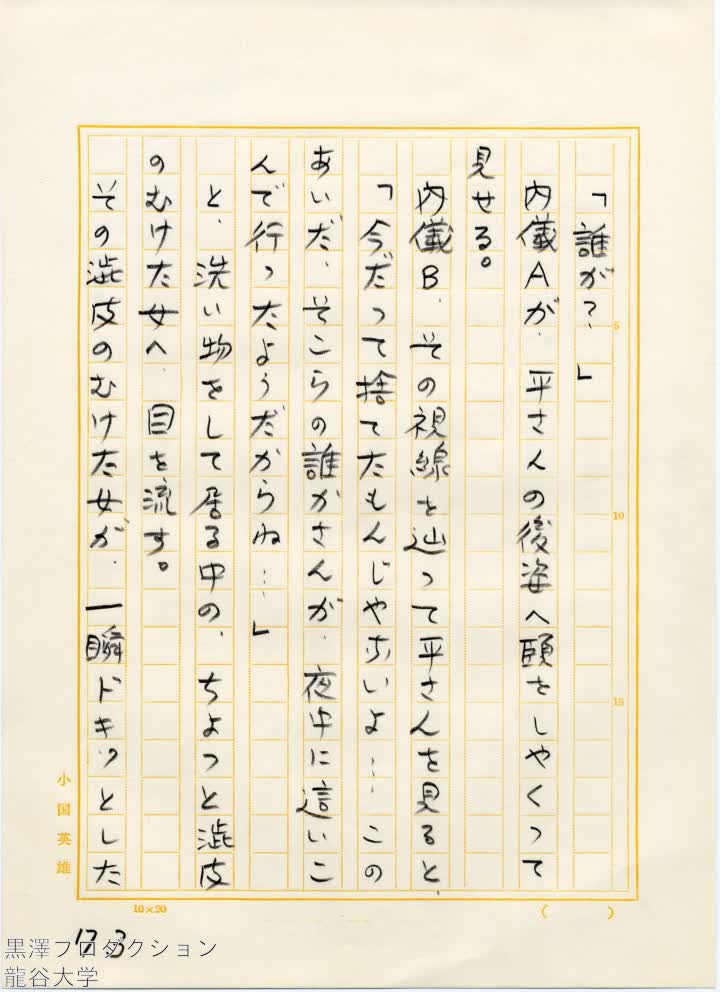 「誰が？」
内儀Aが、平さんの後姿へ頤をしやくつて
見せる。
内儀B、その視線を辿って平さんを見ると、
「今だって捨てたもんじゃないよ……この
あいだ、そこらの誰かさんが、夜中に這いこ
んで行ったようだからね……」
と、洗い物をして居る中の、ちよつと澁皮
のむけた女へ、目を流す。
その澁皮のむけた女が、一瞬ドキッとした
5
10
15
小国英雄
10×20
(　　)
17.3
黒澤プロダクション
龍谷大学